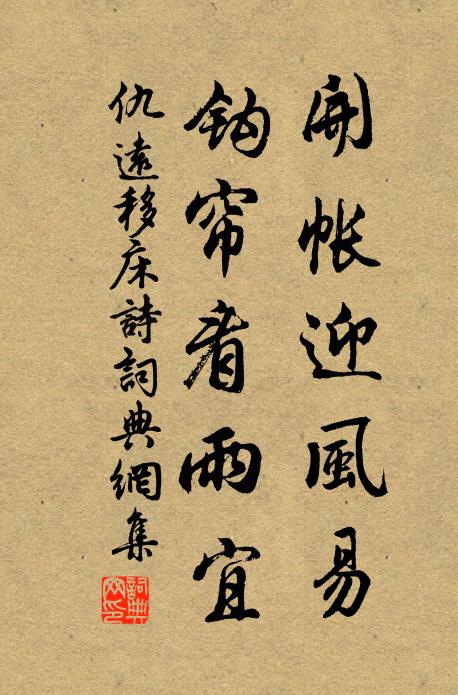 開帳迎風易
鈎帘看雨宜
仇遠移床詩詞典網集
詞典
网印